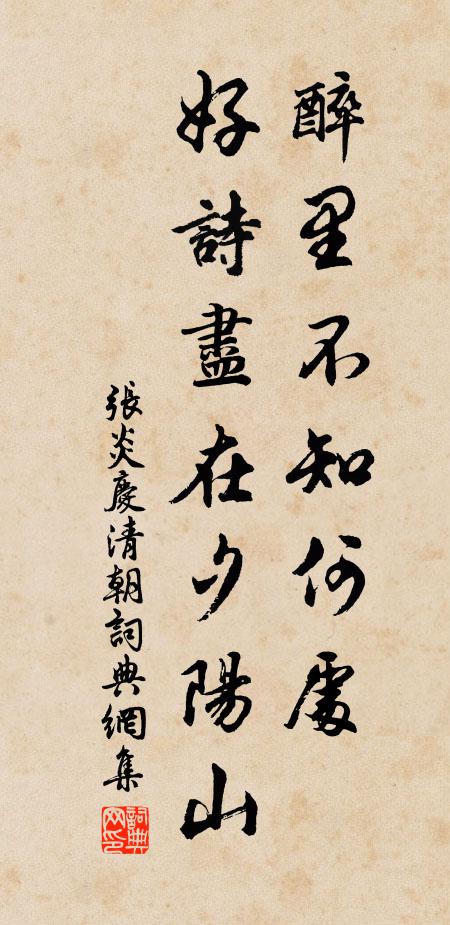 醉里不知何處
好詩盡在夕陽山
張炎慶清朝詞典網集
詞典網印